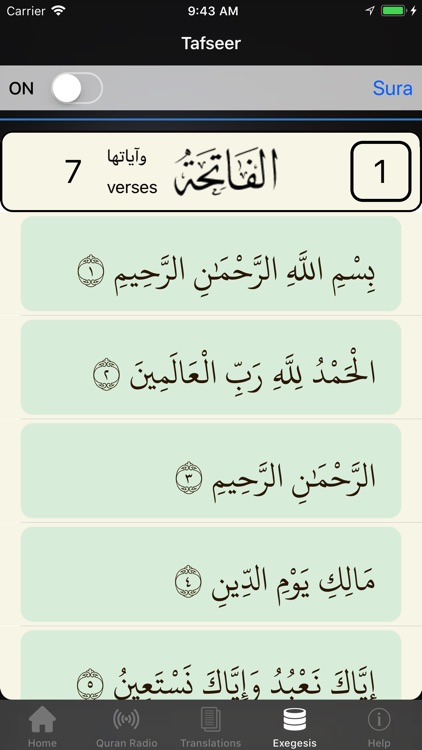 Carrier 9:43 AM
Tafseer
ON Sura
7 وآياتها verses الفَاتِحَةُ 1
بِسْمِ اللَّهِ الرَّحْمَٰنِ الرَّحِيمِ ١
الْحَمْدُ لِلَّهِ رَبِّ الْعَالَمِينَ ٢
الرَّحْمَٰنِ الرَّحِيمِ ٣
مَالِكِ يَوْمِ الدِّينِ ٤
إِيَّاكَ نَعْبُدُ وَإِيَّاكَ نَسْتَعِينُ ٥
Home Quran Radio Translations Exegesis Help